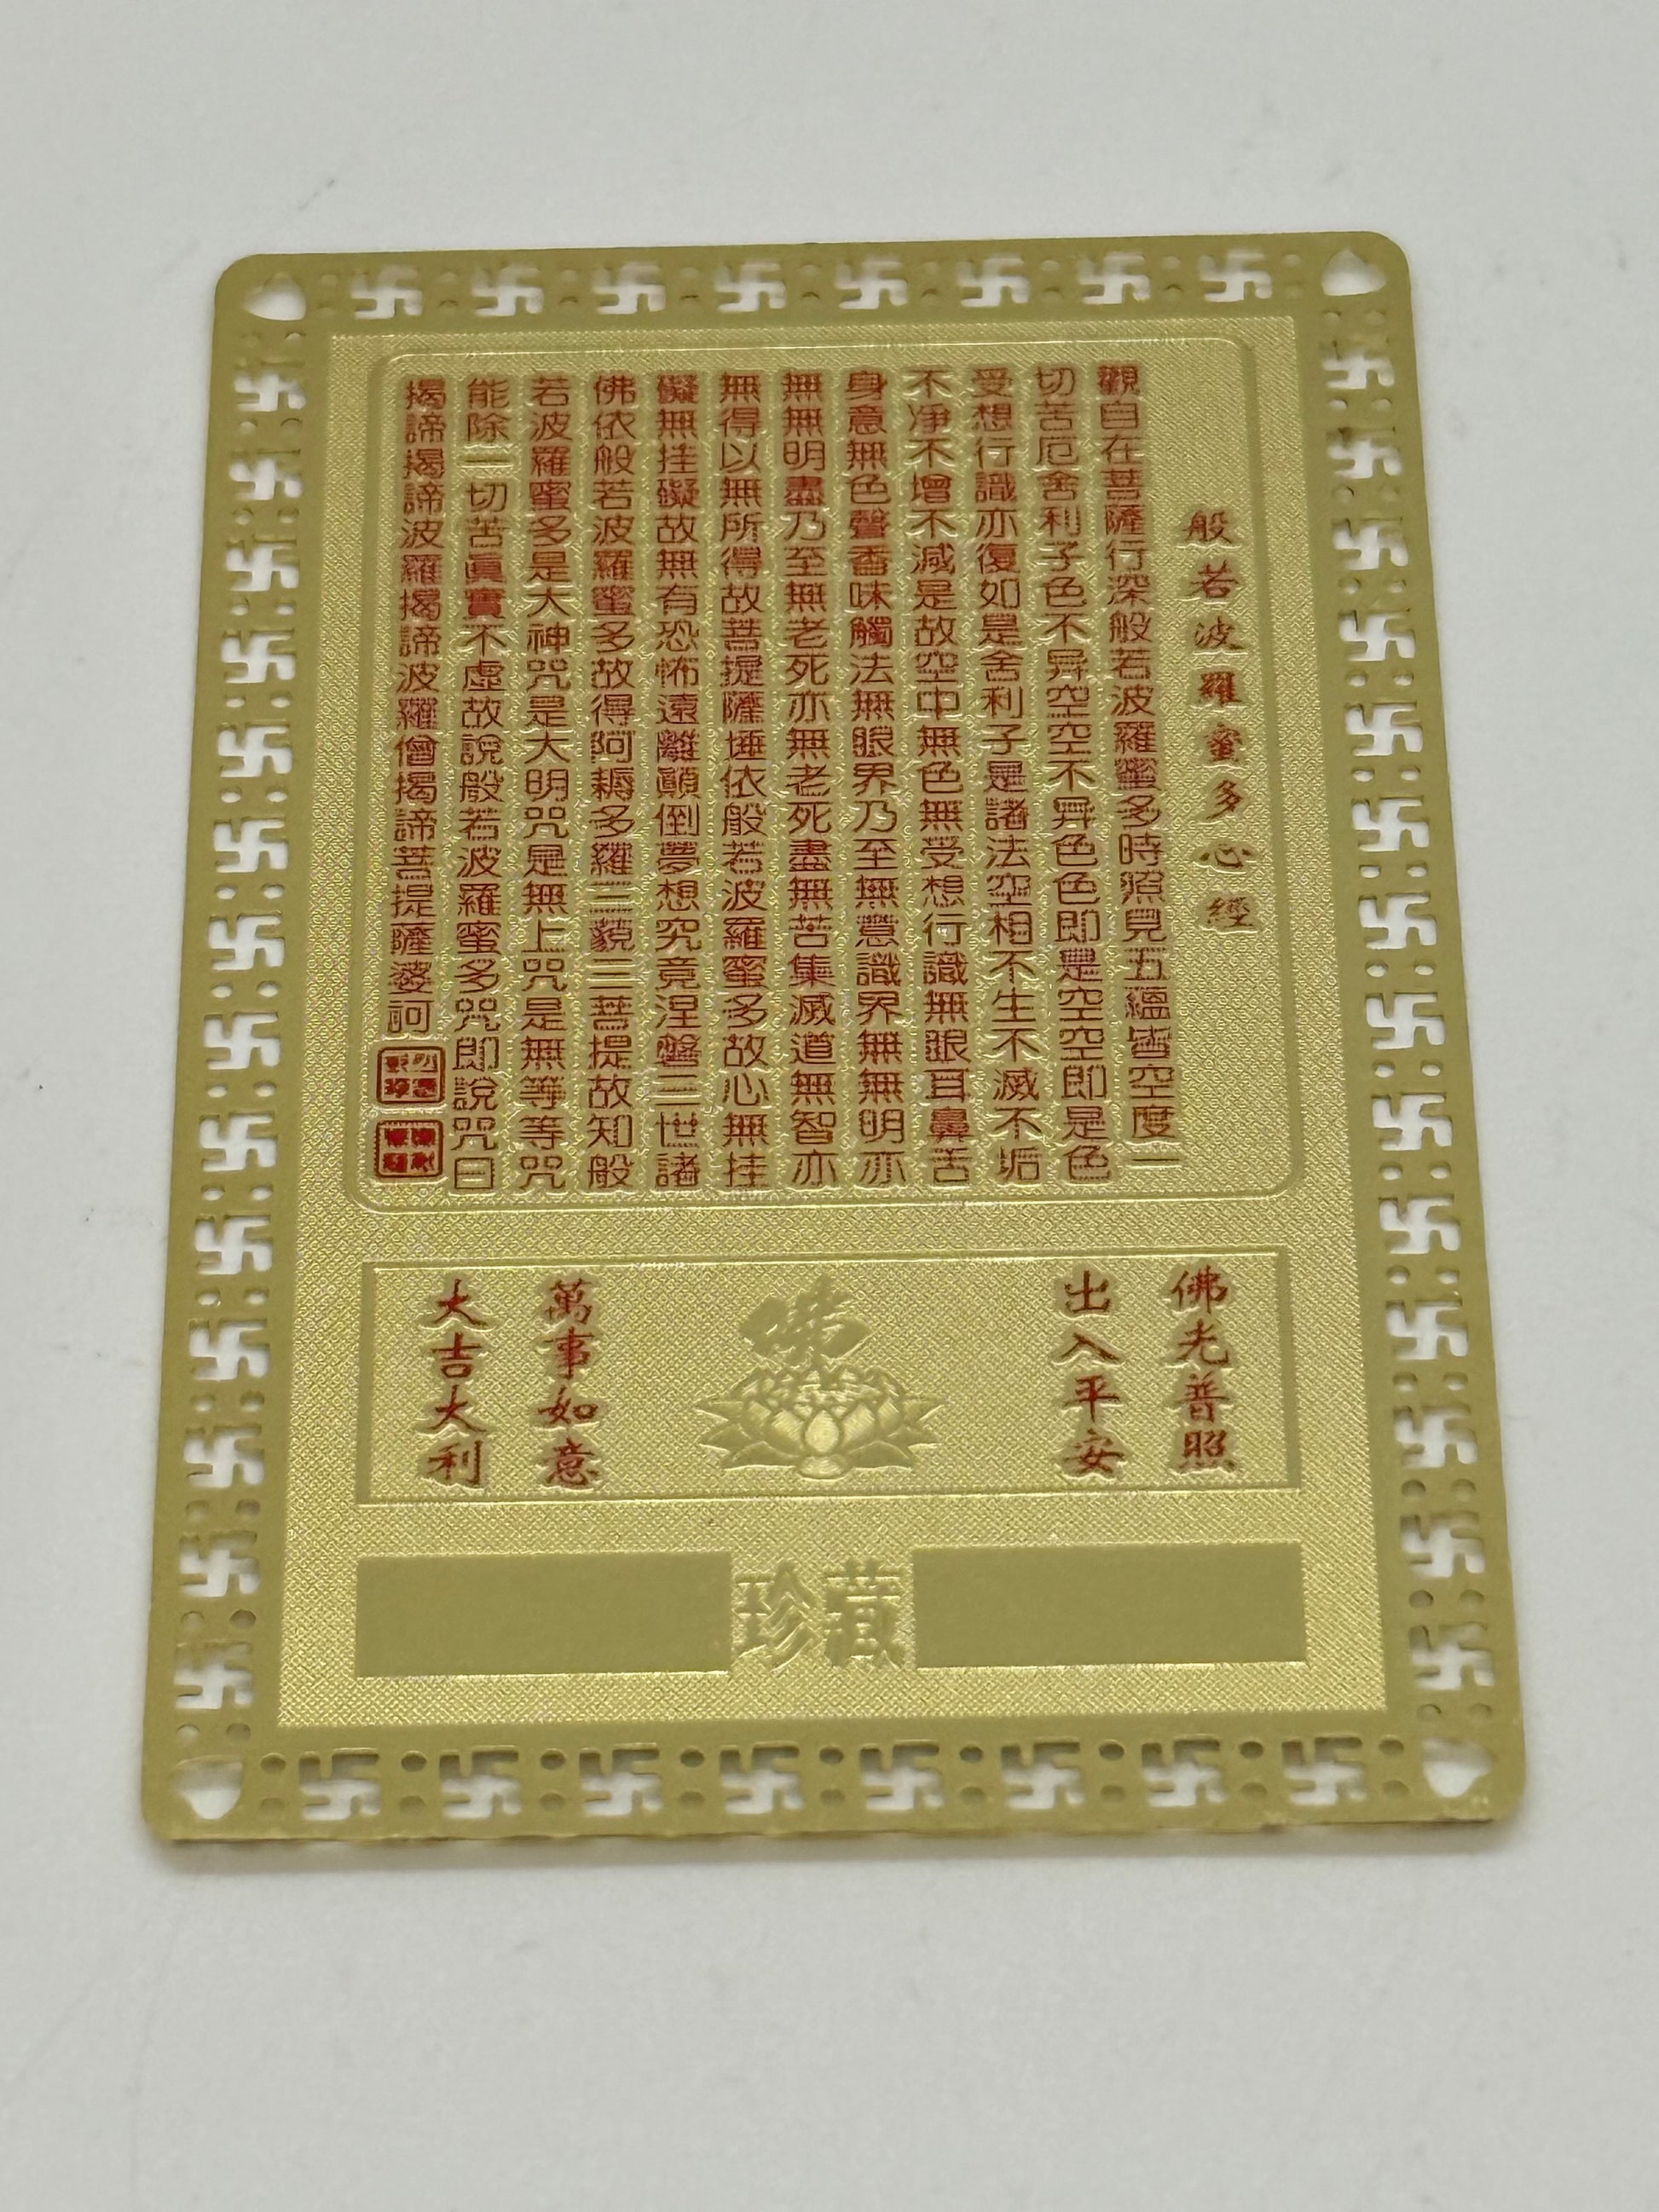 般若波羅蜜多心經
觀自在菩薩行深般若波羅蜜多時照見五蘊皆空度一
切苦厄舍利子色不异空空不异色色即是空空即是色
受想行識亦復如是舍利子是諸法空相不生不滅不垢
不净不增不減是故空中無色無受想行識無眼耳鼻舌
身意無色聲香味觸法無眼界乃至無意識界無無明亦
無無明盡乃至無老死亦無老死盡無苦集滅道無智亦
無得以無所得故菩提薩埵依般若波羅蜜多故心無挂
礙無挂礙故無有恐怖遠離顛倒夢想究竟涅盤三世諸
佛依般若波羅蜜多故得阿耨多羅三藐三菩提故知般
若波羅蜜多是大神咒是大明咒是無上咒是無等等咒
能除一切苦眞實不虛故說般若波羅蜜多咒即說咒曰
揭諦揭諦波羅揭諦波羅僧揭諦菩提薩婆訶
佛光普照
出入平安
佛
萬事如意
大吉大利
珍藏